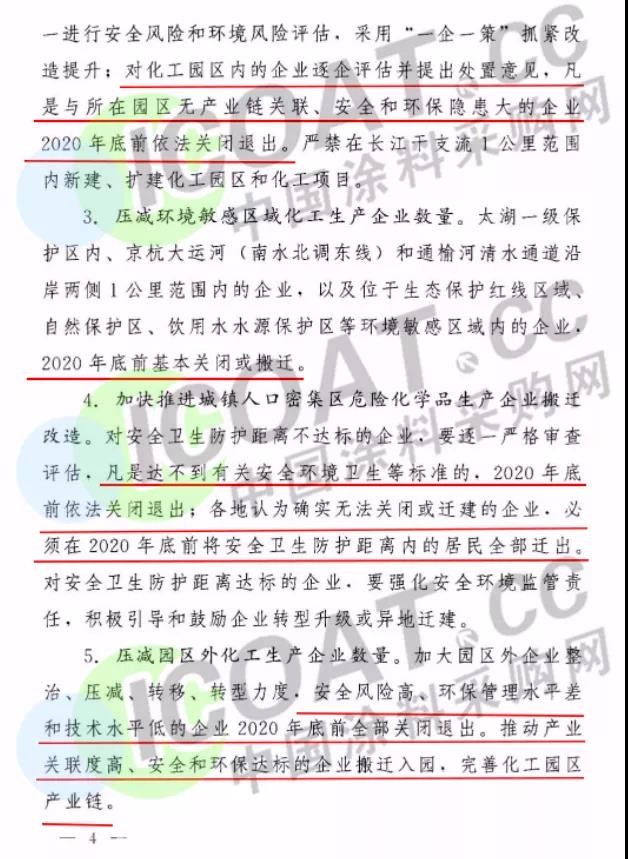 一进行安全风险和环境风险评估，采用“一企一策”抓紧改
造提升；对化工园区内的企业逐企评估并提出处置意见，凡
是与所在园区无产业链关联、安全和环保隐患大的企业
2020年底前依法关闭退出。严禁在长江干支流1公里范围
内新建、扩建化工园区和化工项目。
3．压减环境敏感区域化工生产企业数量。太湖一级保
护区内、京杭大运河（南水北调东线）和通榆河清水通道沿
岸两侧1公里范围内的企业，以及位于生态保护红线区域、
自然保护区、饮用水水源保护区等环境敏感区域内的企业，
2020年底前基本关闭或搬迁。
4．加快推进城镇人口密集区危险化学品生产企业搬迁
改造。对安全卫生防护距离不达标的企业，要逐一严格审查
评估，凡是达不到有关安全环境卫生等标准的，2020年底
前依法关闭退出；各地认为确实无法关闭或迁建的企业，必
须在2020年底前将安全卫生防护距离内的居民全部迁出。
对安全卫生防护距离达标的企业，要强化安全环境监管责
任，积极引导和鼓励企业转型升级或异地迁建。
5．压减园区外化工生产企业数量。加大园区外企业整
治、压减、转移、转型力度，安全风险高、环保管理水平差
和技术水平低的企业2020年底前全部关闭退出。推动产业
关联度高、安全和环保达标的企业搬迁入园，完善化工园区
产业链。
— 4 —
ICOAT.CC
中国涂料采购网
ICOAT.CC
中国涂料采购网
ICOAT.CC
中国涂料采购网